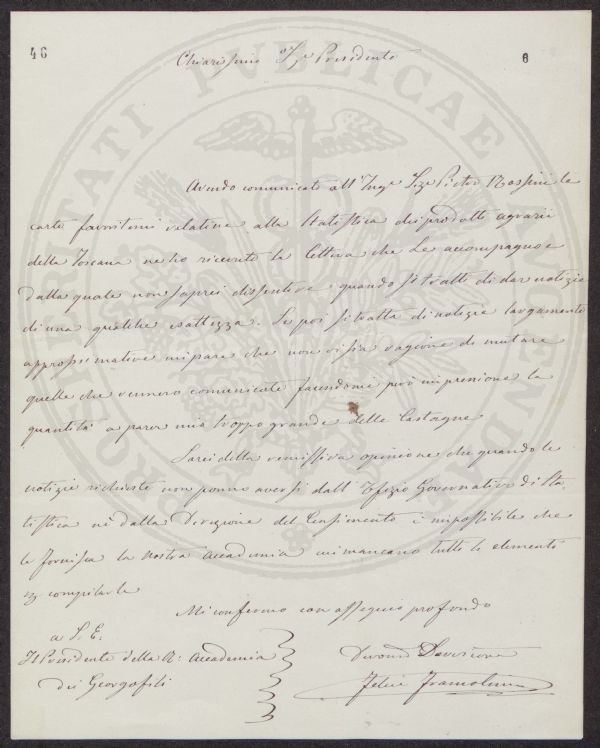 46
6
Chiarissimo Sigr Presidente
Avendo comunicato all'Inge Sigre Pietro Rossini le
carte favoritemi relative alla Statistica dei prodotti agrarii
della Toscana ne ho ricevuto la lettera che Le accompagno e
dalla quale non saprei dissentire quando si tratti di dar notizie
di una qualche esattezza. Se poi si tratta di notizie largamente
approssimative mi pare che non vi sia ragione di mutare
quelle che vennero comunicate facendomi però impressione la
quantità a parer mio troppo grande delle Castagne
Sarei della remissiva opinione che quando le
notizie richieste non ponno aversi dall'Ufizio Governativo di Sta-
tistica nè dalla Direzione del Censimento è impossibile che
le fornisca la nostra Accademia cui mancano tutti li elementi
per compilarle
Mi confermo con ossequio profondo
a S. E:
Il Presidente della R: Accademia
dei Georgofili
Devono Servitore
Felice
PROSPERITATI PUBLICAE AUGENDAE